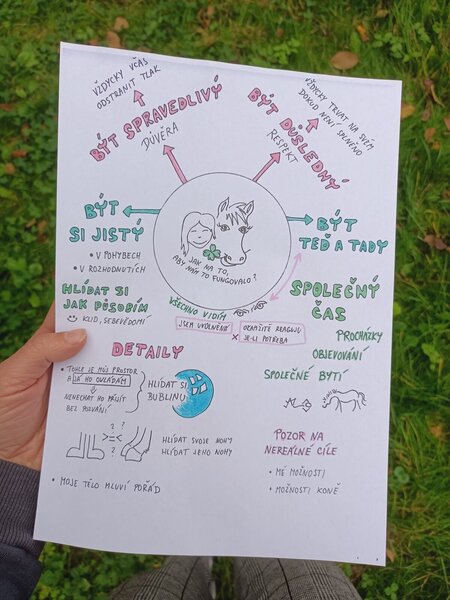 VŽDYCKY VČAS
ODSTRANIT TLAK
BÝT SPRAVEDLIVÝ
DŮVĚRA
VŽDYCKY TRVAT NA SVÉM
DOKUD NENÍ SPLNĚNO
BÝT DŮSLEDNÝ
RESPEKT
BÝT
SI JISTÝ
• V POHYBECH
• V ROZHODNUTÍCH
JAK NA TO,
ABY NÁM TO FUNGOVALO?
BÝT
TEĎ A TADY
HLÍDAT SI
JAK PŮSOBÍM
KLID, SEBEVĚDOMÍ
VŠECHNO VIDÍM
JSEM UVOLNĚNÝ
×
OKAMŽITĚ REAGUJU
JE-LI POTŘEBA
SPOLEČNÝ
ČAS
PROCHÁZKY
OBJEVOVÁNÍ
SPOLEČNÉ BYTÍ
DETAILY
• TOHLE JE MŮJ PROSTOR
A JÁ HO OVLÁDÁM
NENECHAT HO PŘIJÍT
BEZ POZVÁNÍ
HLÍDAT SI
BUBLINU
? ?
>=<
?
HLÍDAT SVOJE NOHY
HLÍDAT JEHO NOHY
• MOJE TĚLO MLUVÍ POŘÁD
POZOR NA
NEREÁLNÉ CÍLE
• MÉ MOŽNOSTI
• MOŽNOSTI KONĚ